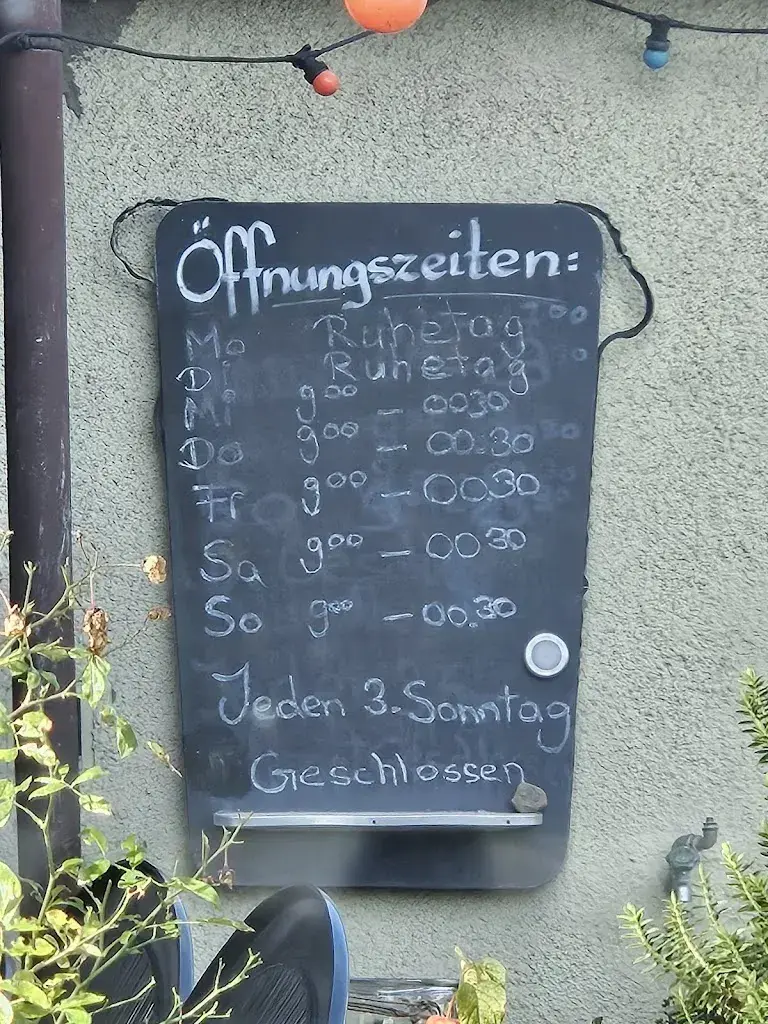 Öffnungszeiten:
Mo Ruhetag
Di Ruhetag
Mi 9⁰⁰ – 00³⁰
Do 9⁰⁰ – 00.30
Fr 9⁰⁰ – 00³⁰
Sa 9⁰⁰ – 00³⁰
So 9⁰⁰ – 00.30
Jeden 3. Sonntag
Geschlossen